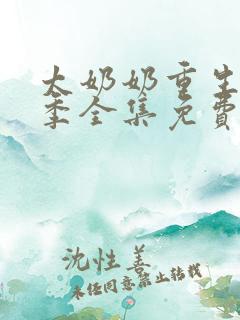 太奶奶重生
季全集免费
沈性善
未经同意禁止转载